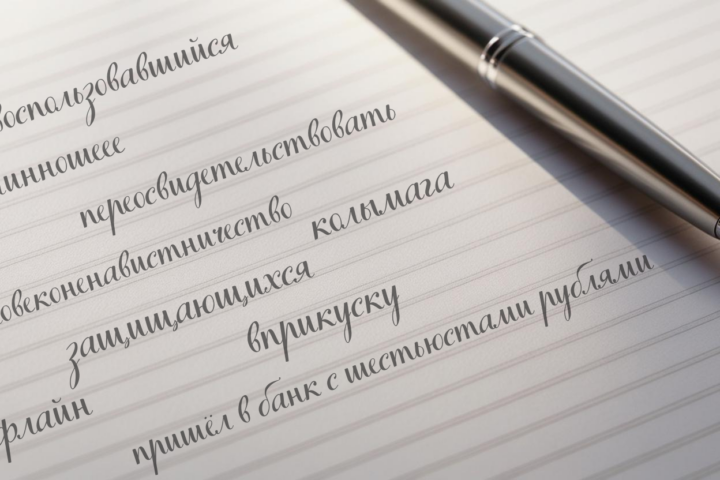 воспользовавшийся
инношеее
переосвидетельствовать
овеконенавистничество
колымага
защищающихся
вприкуску
флайн
пришёл в банк с шестьюстами рублями